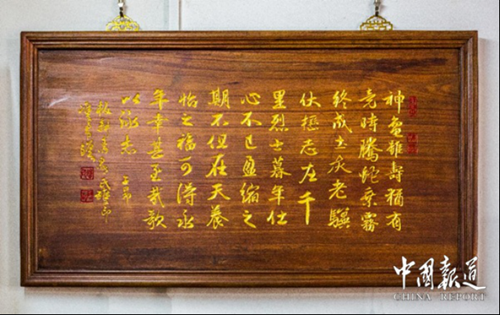 神龜雖寿猶有
竟時騰蛇乘霧
终成土灰老驥
伏櫪志在千
里烈士暮年壮
心不已盈缩之
期不但在天養
怡之福可得永
年幸甚至哉歌
以咏志
中國報道
CHINA REPORT